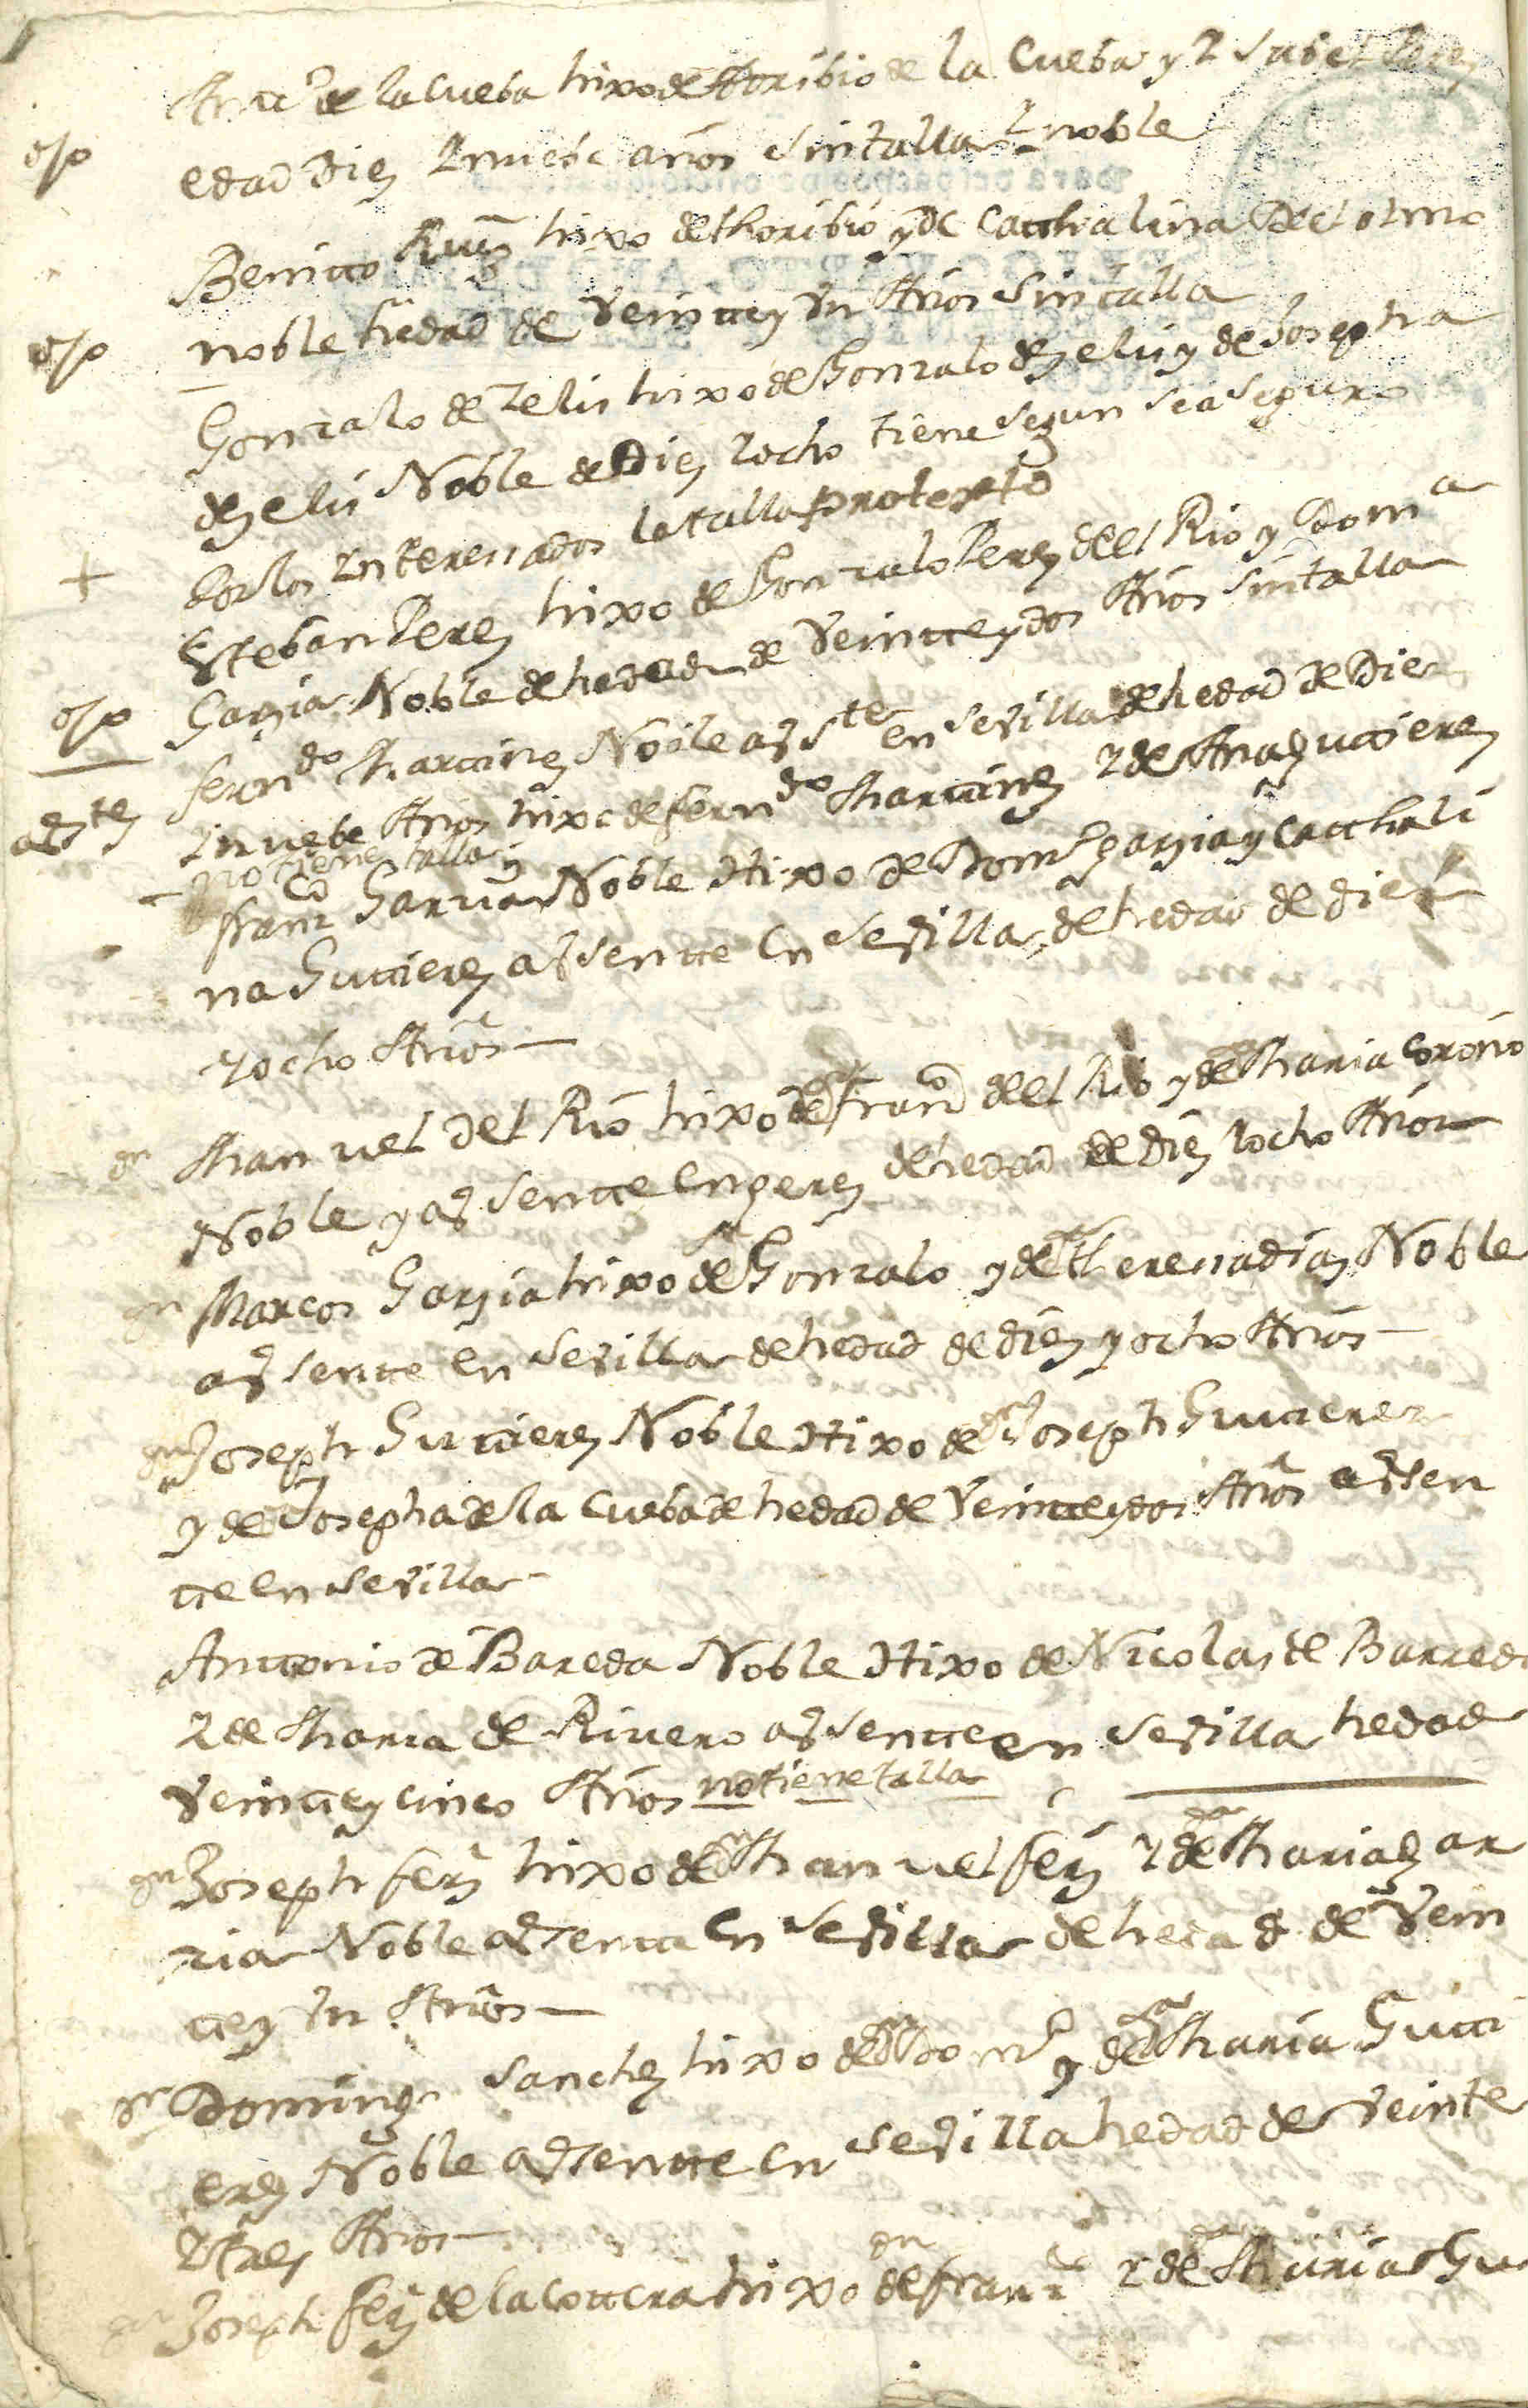 de la Cueba hixo de thoribio de la Cueba y Ysabel Perez
ojo
edad Diez Ynuebe años sin talla Y noble
Benitto Ruiz hixo de thoribio y de Catthalina Del olmo
ojo
noble hedad de Veintte y Un Años sin talla
Gonzalo de Zelis hixo de Gonzalo de zelis y de Josepha
de zelis Noble de Diez Yocho tiene segun se aseguro
+
Por los Ynteresados la talla protexto
Esteban Perez hixo de Gonzalo Perez del Rio y Dom.a
ojo
Garzia Noble de hedad de Veintte y dos Años sin talla
fern.do Marttinez Noble aus.te en Sevilla de hedad de Die
aus.te
Ynuebe Años hixo de fern.do Marttinez Y de Ana Guttierez
no tiene talla
fran.co Garzia Noble Hixo de Dom.o garzia y Catthali
na Guttierez aussentte en Sevilla de hedad de diez
Yocho Años
Manuel del Rio hixo de fran.co del Rio y de Maria
dn
Noble y aussentte en gerez de hedad de diez Yocho Años
dn Marcos Garzia hixo de Gonzalo y de theresa diaz Noble
aussentte en Sevilla de hedad de diez y ocho Años
dn Joseph Guttierez Noble Hixo de dn Joseph Guttierez
y de Josepha de la Cueba de hedad de Veintte y dos Años aussen
tte en Sevilla
Anttonio de Bareda Noble Hixo de Nicolas de Barreda
Y de Maria de Rivero aussentte en Sevilla hedad
Veintte y cinco Años no tiene talla
dn Joseph ferz hixo de dn Manuel ferz Y de Maria gar
zia Noble en Sevilla de hedad de Vein
tte y Un Años
dn Domingo Sanchez hixo de dn Dom.o y de Maria Gutti
erez Noble aussentte en Sevilla hedad de Veinte
Ytres Años
dn
Joseph ferz de la cottera hixo de fran.co Y de Maria Gu